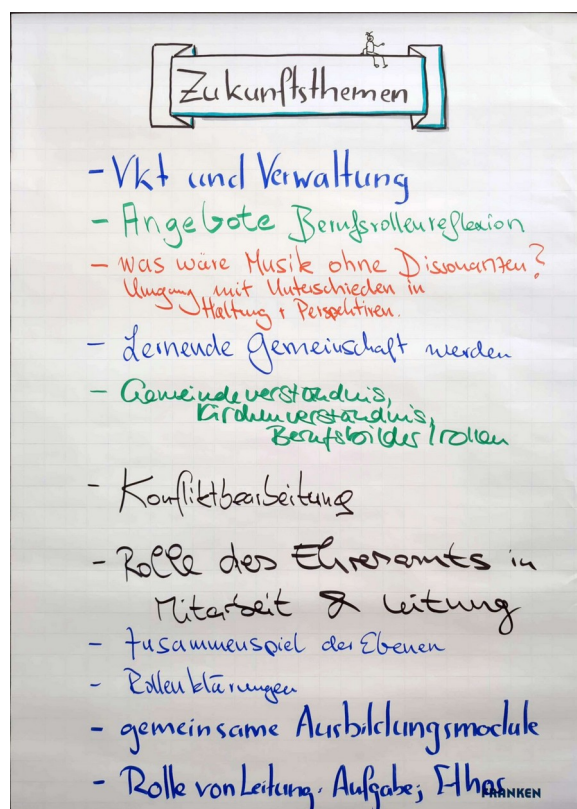 Zukunftsthemen
- Vkt und Verwaltung
- Angebote Berufsrollenreflexion
- Was wäre Musik ohne Dissonanzen?
Umgang mit Unterschieden in
Haltung + Perspektiven.
- Lernende Gemeinschaft werden
- Gemeindeverständnis,
Kirchenverständnis,
Berufsbilder/rollen
- Konfliktbearbeitung
- Rolle des Ehrenamts in
Mitarbeit & Leitung
- Zusammenspiel der Ebenen
- Rollenklärungen
- gemeinsame Ausbildungsmodule
- Rolle von Leitung. Aufgabe; Ethos
FRANKEN